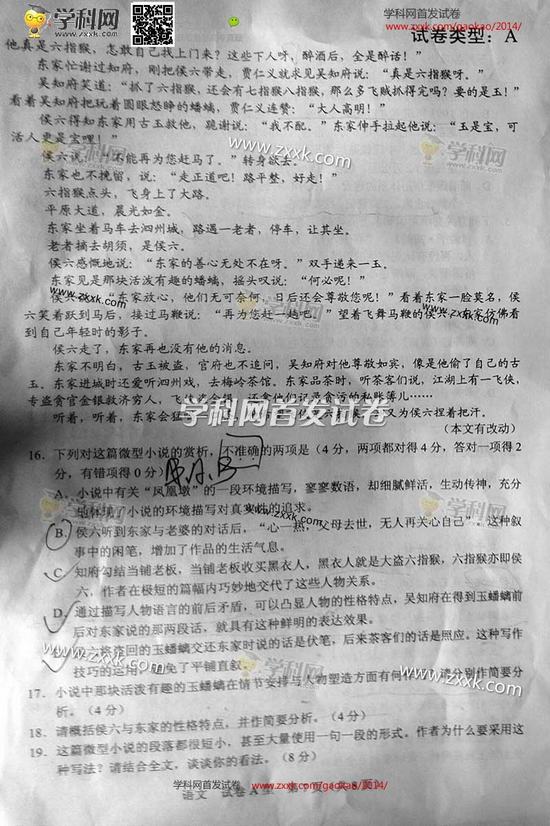 学科网首发试卷
www.zxxk.com/gaokao/2014/
学科网
www.zxxk.com
试卷类型：A
他真是六指猴，怎敢自己找上门来？这些下人呀，醉酒后，全是醉话！”
东家忙谢过知府，刚把侯六带走，贾仁义就来见吴知府说：“真是六指猴呀。”
吴知府笑道：“抓了六指猴，还会有七指猴八指猴，那么多飞贼抓得完吗？要的是玉！”
看着吴知府把玩着圆眼怒睁的蟠螭，贾仁义连赞：“大人高明！”
侯六得知东家用古玉救他，跪谢说：“我不配。”东家伸手拉起他说：“玉是宝，可
活人更是宝哩！”
侯六说：“不能再为您赶马了。”转身欲去。
东家也不挽留，说：“走正道吧！路平整，好走！”
六指猴点头，飞身上了大路。
平原大道，晨光如金。
东家坐着马车去泗州城，路遇一老者，停车，让其坐。
老者摘去胡须，是侯六。
侯六感慨地说：“东家的善心无处不在呀。”双手递来一玉。
东家见是那块活泼有趣的蟠螭，摇头叹说：“何必呢！”
“东家放心，他们无可奈何，日后还会尊敬您呢！”看着东家一脸莫名，侯
六笑着跃到马后，接过马鞭说：“再为您赶一趟吧。”望着飞舞马鞭的侯六，东家仿佛看
到自己年轻时的影子。
侯六走了，东家再也没有他的消息。
东家不明白，古玉被盗，官府也不追问，吴知府对他尊敬如宾，像是他偷了自己的古
玉。东家进城时还爱听泗州戏，去梅岭茶馆。东家品茶时，听茶客们说，江湖上有一飞侠，
专盗贪官金银救济穷人，
听着，听着，东家会 又为侯六捏着把汗。
学科网首发试卷
（本文有改动）
16．下列对这篇微型小说的赏析，不准确的两项是（4分，两项都对得4分，答对一项得2
分，有错项得0分）
A．小说中有关“凤凰墩”的一段环境描写，寥寥数语，却细腻鲜活，生动传神，充分
地体现了小说的环境描写对真实性的追求。
B．侯六听到东家与老婆的对话后，“心一热，父母去世，无人再关心自己”。这种叙
事中的闲笔，增加了作品的生活气息。
C．知府勾结当铺老板，当铺老板收买黑衣人，黑衣人就是大盗六指猴，六指猴亦即侯
六，作者在极短的篇幅内巧妙地交代了这些人物关系。
D．通过描写人物语言的前后矛盾，可以凸显人物的性格特点，吴知府在得到玉蟠螭前
后对东家说的那两段话，就具有这种鲜明的表达效果。
六将盗回的玉蟠螭交还东家时说的话是伏笔，后来茶客们的话是照应。这种写作
技巧的运用，避免了平铺直叙。
17．小说中那块活泼有趣的玉蟠螭在情节安排与人物塑造方面有何作用？请分别作简要分
析。（4分）
18．请概括侯六与东家的性格特点，并作简要分析。（4分）
19．这篇微型小说的段落都很短小，甚至大量使用一句一段的形式。作者为什么要采用这
种写法？请结合全文，谈谈你的看法。（8分）
学科网首发试卷
www.zxxk.com/gaokao/2014/
语文 试卷A型